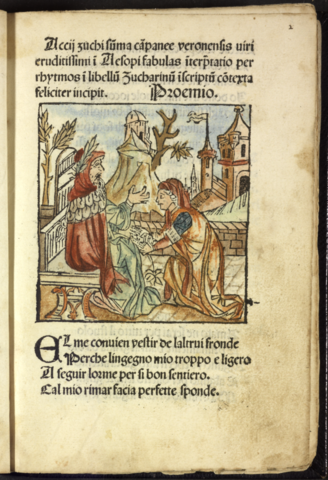 Accij zuchi sūma cāpanee veronensis viri
eruditissimi ī Aesopi fabulas īterp̄tatio per
rhythmos ī libellū Zucharinū īscriptū cōtexta
feliciter incipit. Proemio.
EL me conuien vestir de laltrui fronde
Perche lingegno mio troppo e ligero
A seguir lorme per si bon sentiero.
Cal mio rimar facia perfette sponde.